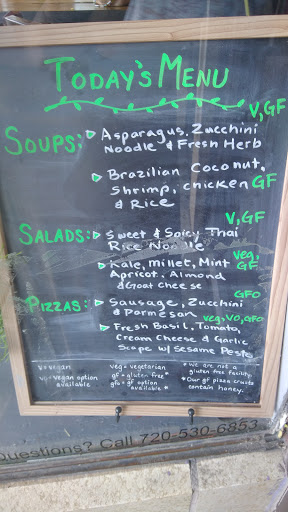 TODAY'S MENU
V, GF
SOUPS: Asparagus, Zucchini
Noodle & Fresh Herb
Brazilian Coconut,
Shrimp, chicken GF
& Rice
V, GF
SALADS: Sweet & Spicy Thai
Rice Noodle
Kale, Millet, Mint Veg, GF
Apricot, Almond
& Goat cheese
GFO
PIZZAS: Sausage, Zucchini
& Parmesan
veg, VO, GFO
Fresh Basil, Tomato,
Cream Cheese & Garlic
Scape w/ Sesame Pesto
V = vegan
vo = vegan option
available
veg = vegetarian
gf = gluten free*
gfo = gf option
available *
* We are not a
gluten free facility
* Our gf pizza crusts
contain honey.
questions? Call 720-530-6853